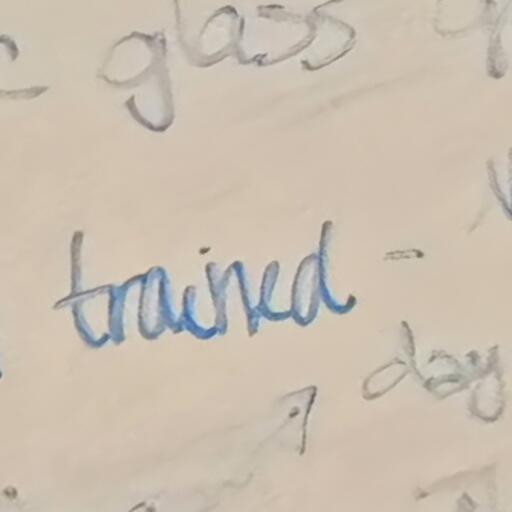 glass
trained -
day